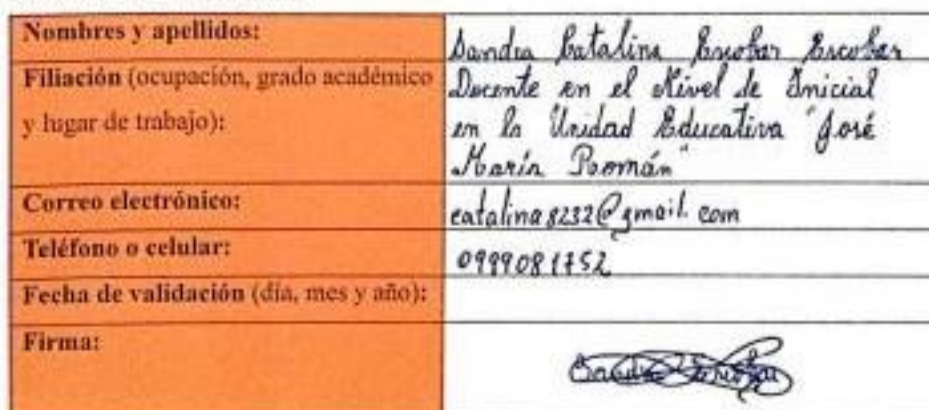 Nombres y apellidos:
Sandra Catalina Escobar Escobar
Filiación (ocupación, grado académico
y lugar de trabajo):
Docente en el Nivel de Inicial
en la Unidad Educativa "José
María Román"
Correo electrónico:
catalina8232@gmail.com
Teléfono o celular:
0999081752
Fecha de validación (día, mes y año):
Firma: